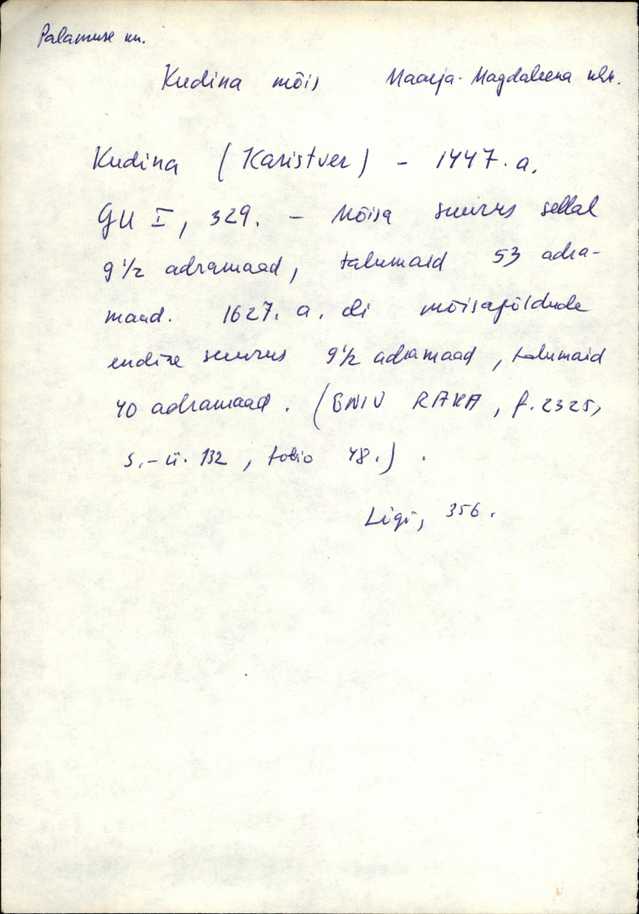 Palamuse kn.
Kudina mõis Maarja-Magdaleena khk.
Kudina (Karistver) - 1447. a.
GU I, 329. - Mõisa suurus sellal
9 1/2 adramaad, talumaid 53 adra-
maad. 1627. a. oli mõisapõldude
endine suurus 9 1/2 adramaad, talumaid
40 adramaad. (ENSV RAKA, f. 2325,
s.-ü. 132, tobio 48.).
Ligi, 356.